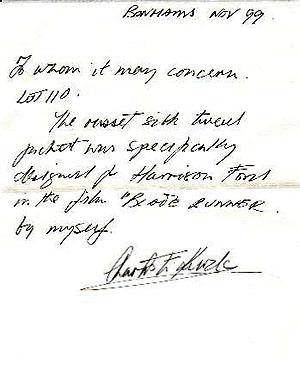 BONHAMS NOV 99.
To whom it may concern.
LOT 110.
The russet silk tweed
jacket was specifically
designed for Harrison Ford
in the film "BLADE RUNNER.
by myself.